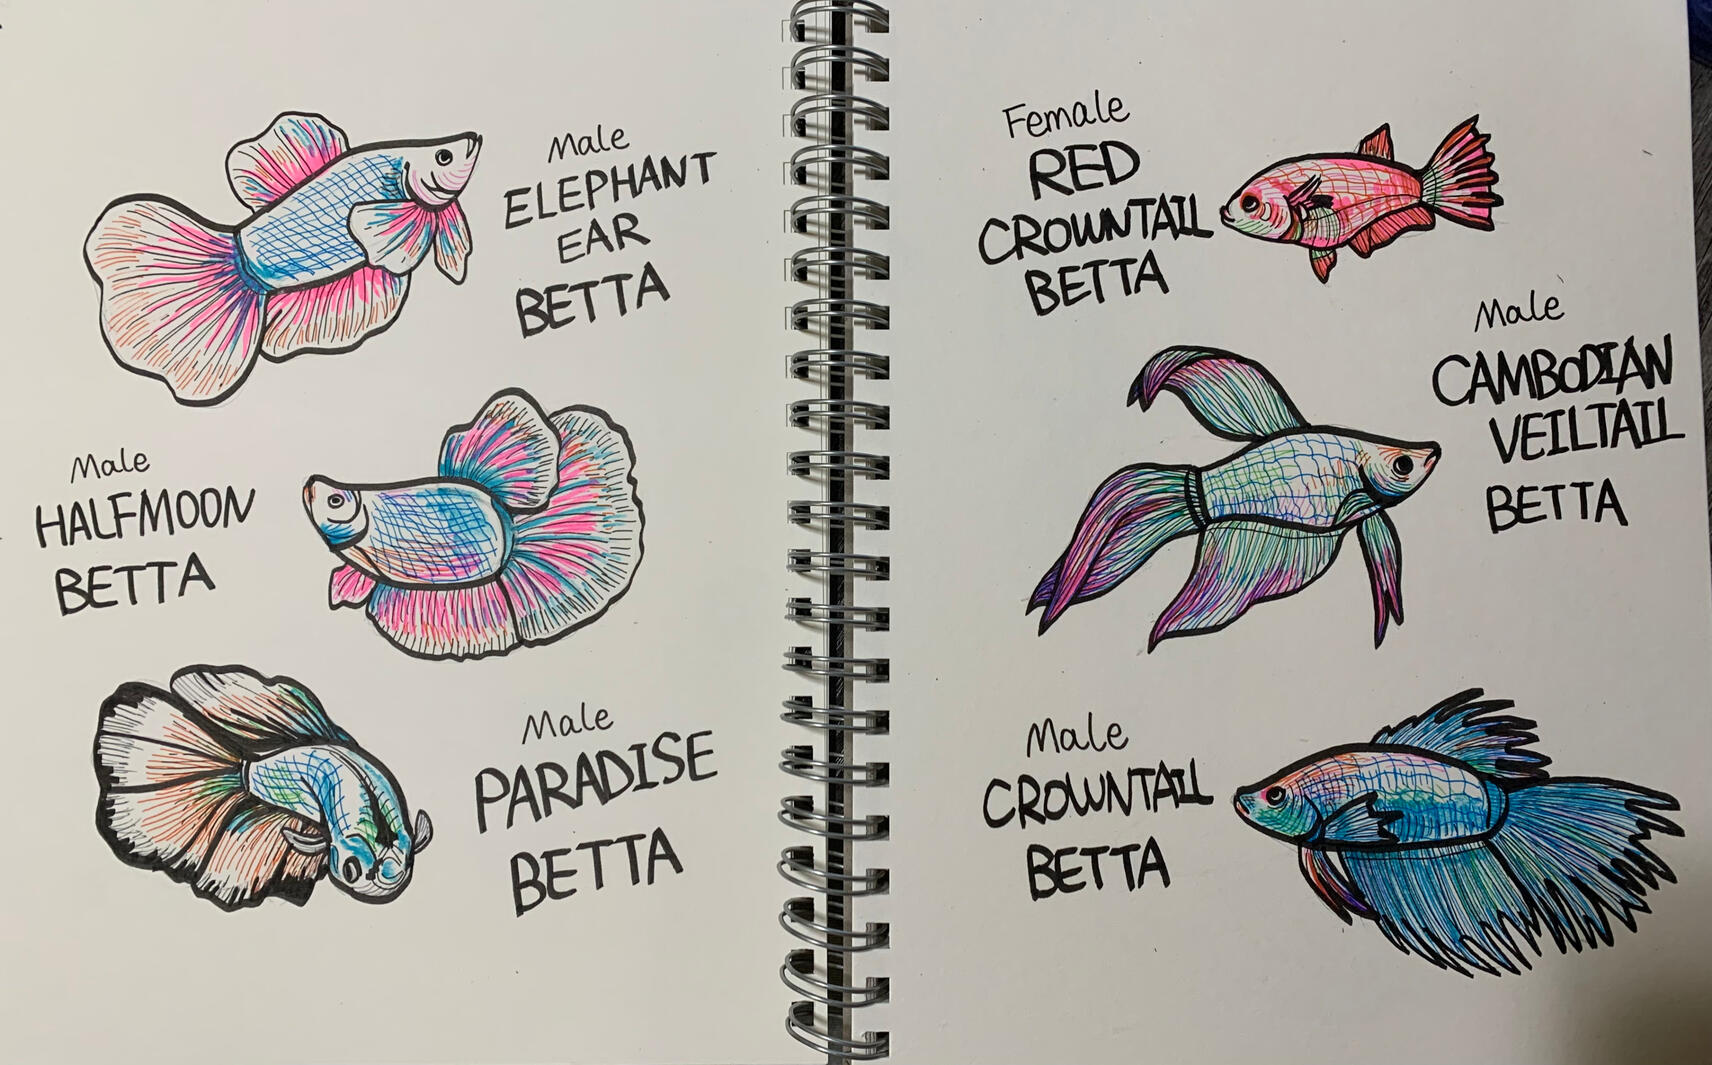 Male
ELEPHANT
EAR
BETTA
Male
HALFMOON
BETTA
Male
PARADISE
BETTA
Female
RED
CROWNTAIL
BETTA
Male
CAMBODIAN
VEILTAIL
BETTA
Male
CROWNTAIL
BETTA